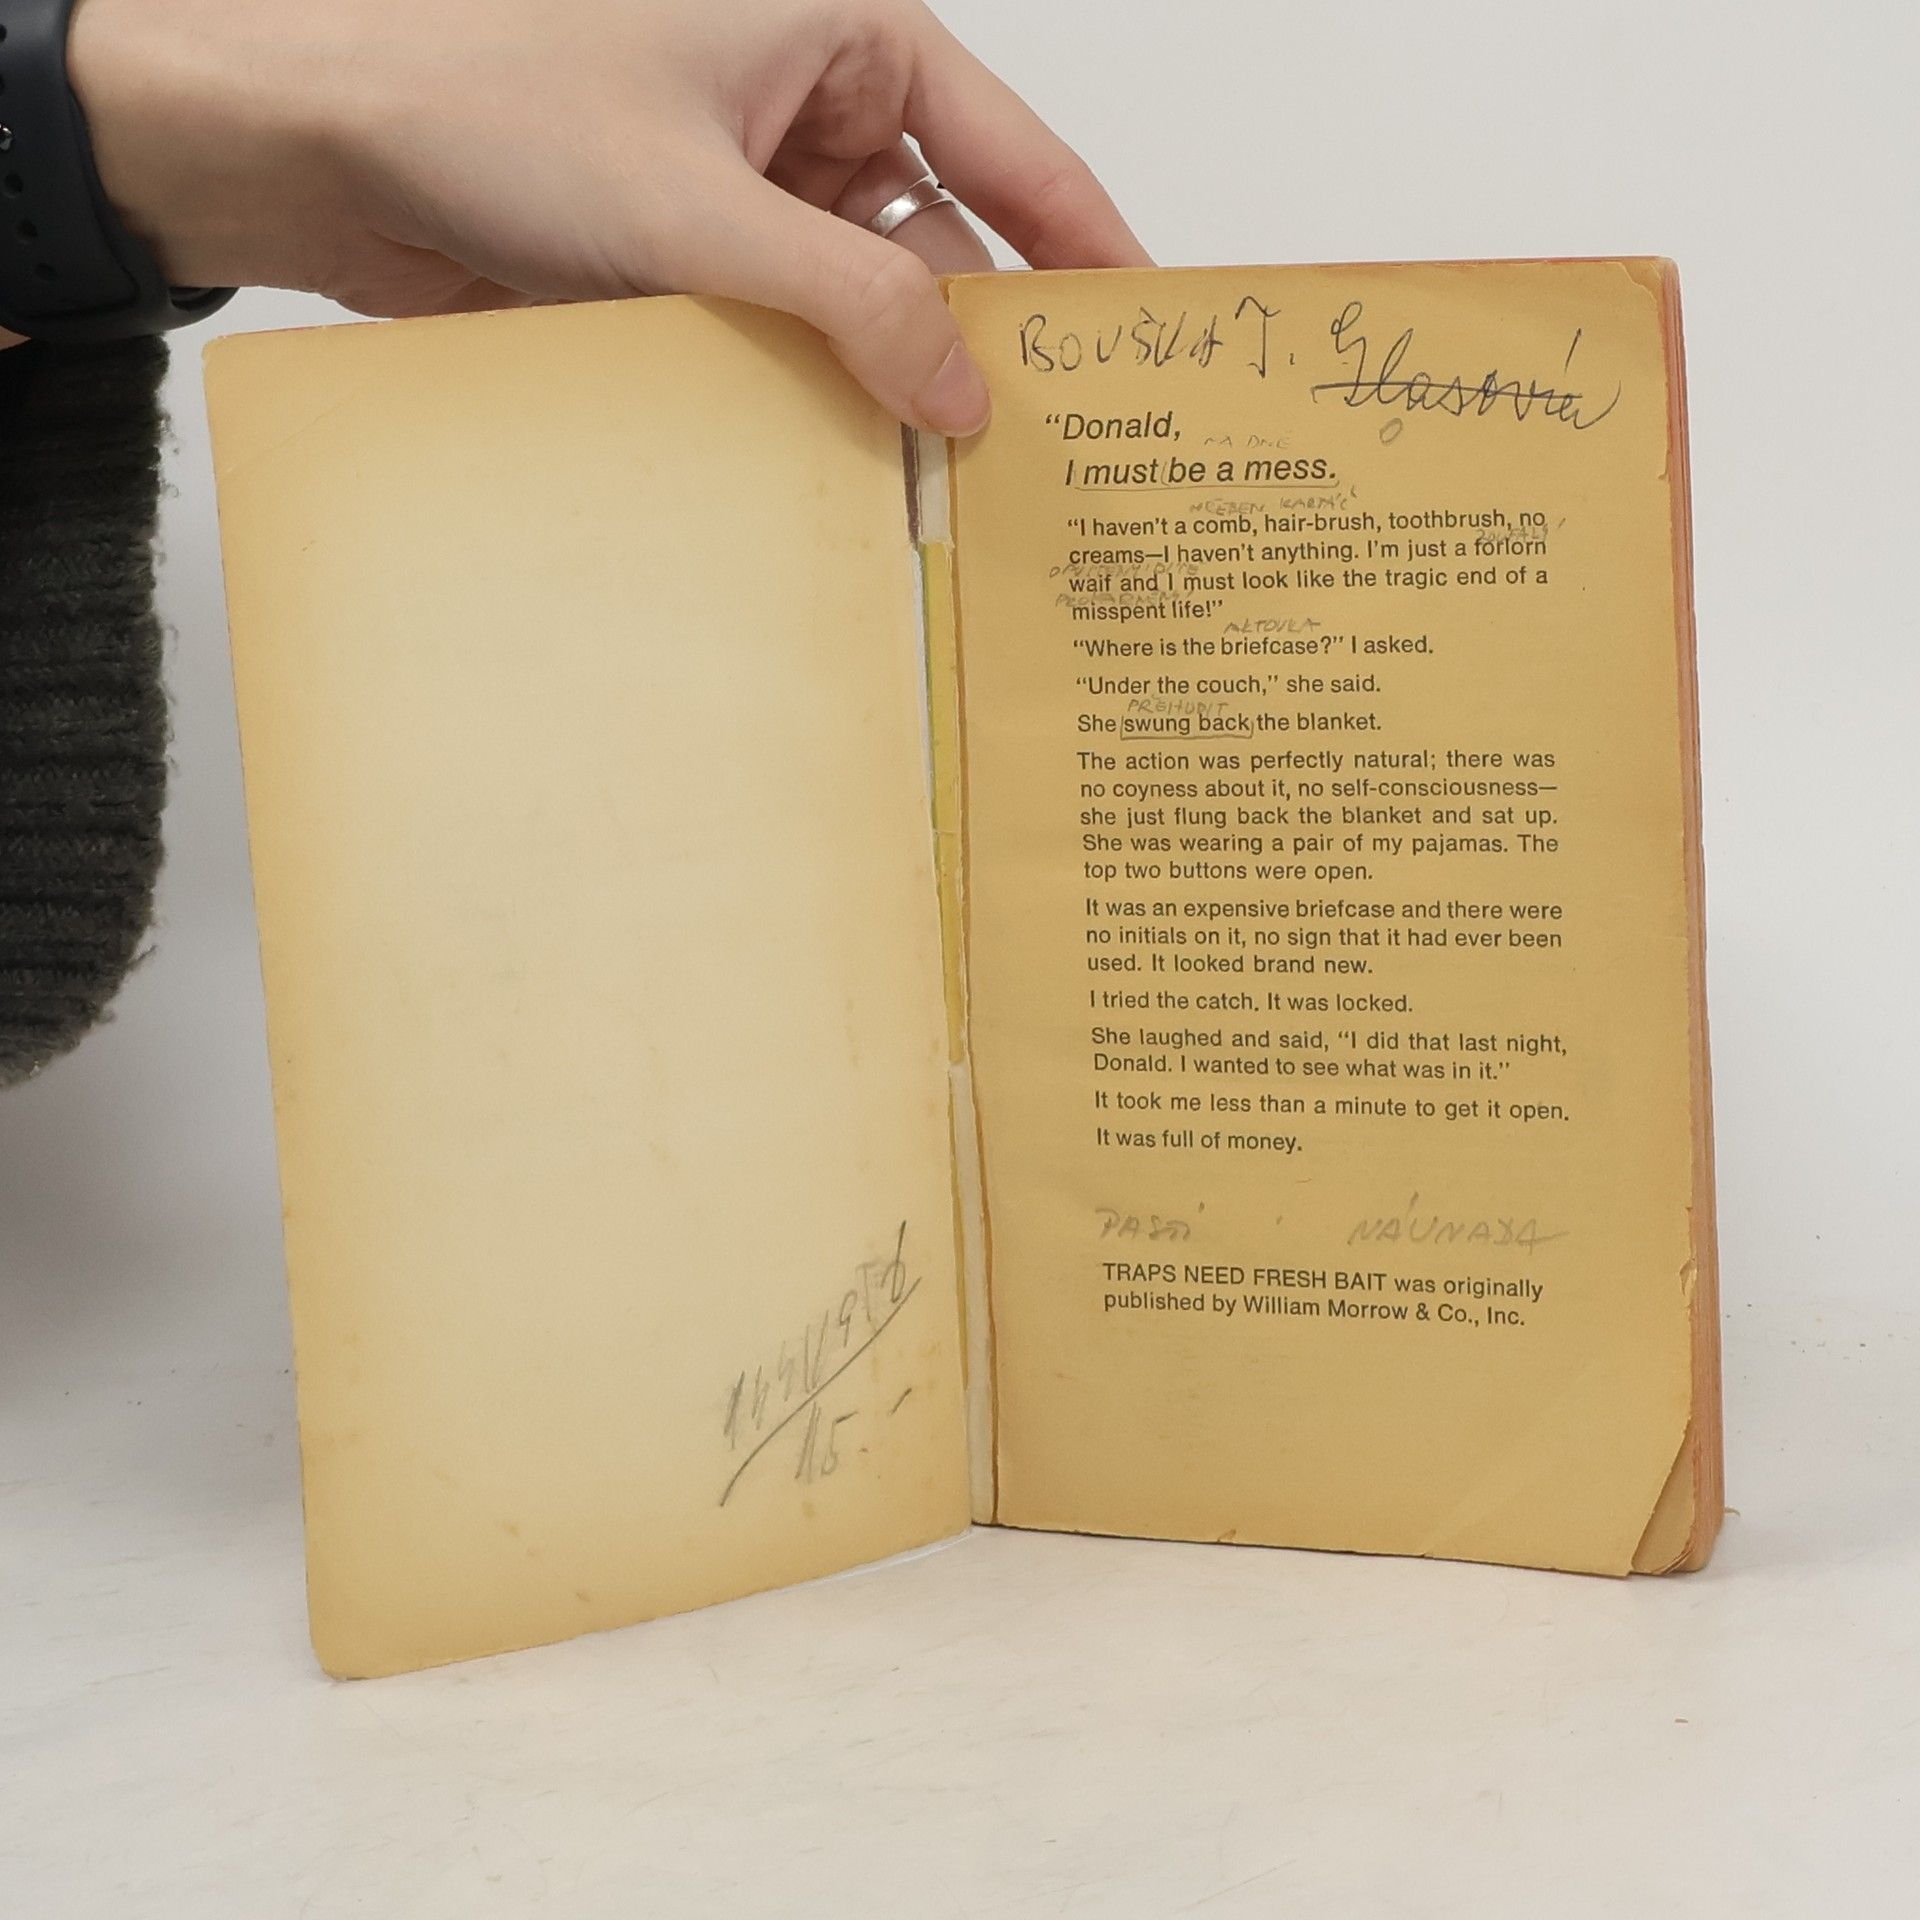 15 -
BOUŠKA J.
"Donald,
NA DNĚ
I must be a mess.
HŘEBEN KARTÁČ
"I haven't a comb, hair-brush, toothbrush, no
ZOUFALÝ
creams—I haven't anything. I'm just a forlorn
waif and I must look like the tragic end of a
misspent life!"
AKTOVKA
"Where is the briefcase?" I asked.
"Under the couch," she said.
She swung back the blanket.
The action was perfectly natural; there was
no coyness about it, no self-consciousness—
she just flung back the blanket and sat up.
She was wearing a pair of my pajamas. The
top two buttons were open.
It was an expensive briefcase and there were
no initials on it, no sign that it had ever been
used. It looked brand new.
I tried the catch. It was locked.
She laughed and said, "I did that last night,
Donald. I wanted to see what was in it."
It took me less than a minute to get it open.
It was full of money.
NÁVNADA
TRAPS NEED FRESH BAIT was originally
published by William Morrow & Co., Inc.